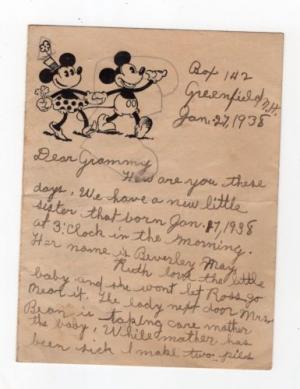 Box 142
Greenfield N.H.
Jan. 27, 1938
Dear Grammy
How are you these
days. We have a new little
sister that born Jan. 17, 1938
at 3:Clock in the morning.
Her name is Beverley May
Ruth love the little
baby and she wont let Ross go
near it. The lady next door Mrs.
Bean is taking care mother
the baby, While mother has
been sick I make two pies